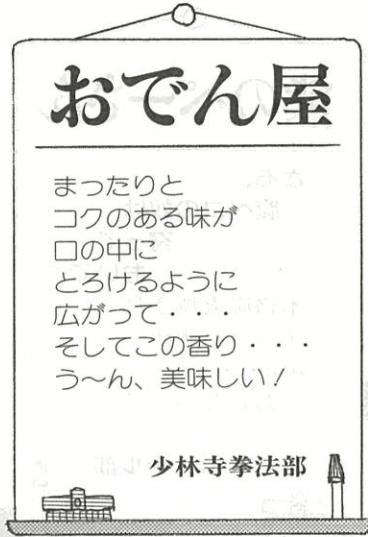 おでん屋
まったりと
コクのある味が
口の中に
とろけるように
広がって・・・
そしてこの香り・・・
う〜ん、美味しい！
少林寺拳法部